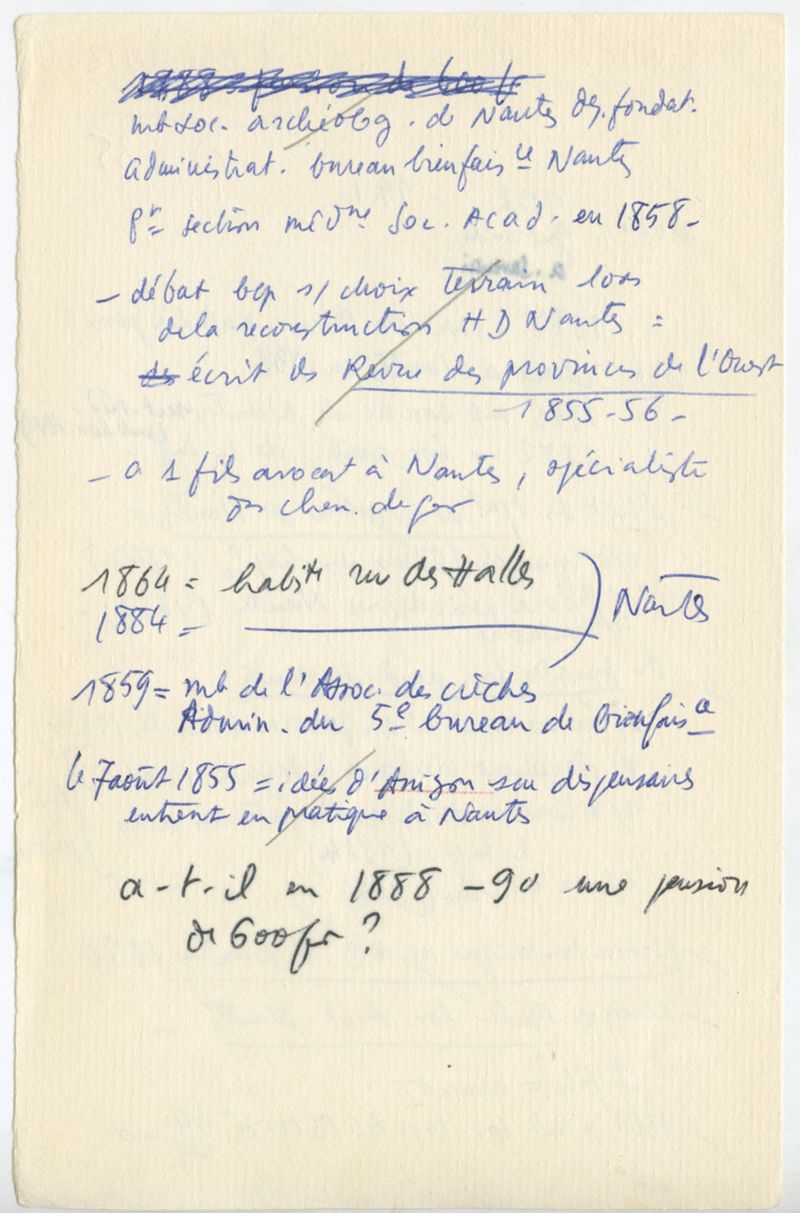 1888 pension de 600 fr
mb Soc. archéolog. de Nantes dès fondat.
Administrat. bureau bienfais ce Nantes
Pr section méd ne Soc. Acad. en 1858 -
- débat bcp s/ choix Terrain lors
de la reconstruction HD Nantes =
écrit ds Revue des provinces de l'Ouest
- 1855-56 -
- a 1 fils avocat à Nantes, spécialiste
chem. de fer
1864 = habite rue des Halles
1884 =
) Nantes
1859 = mb de l'Assoc. des crèches
Admin. du 5e bureau de bienfais ce
le 7 août 1855 = idées d'Anizon sur dispensaires
entrent en pratique à Nantes
a-t-il en 1888-90 une pension
de 600 fr ?